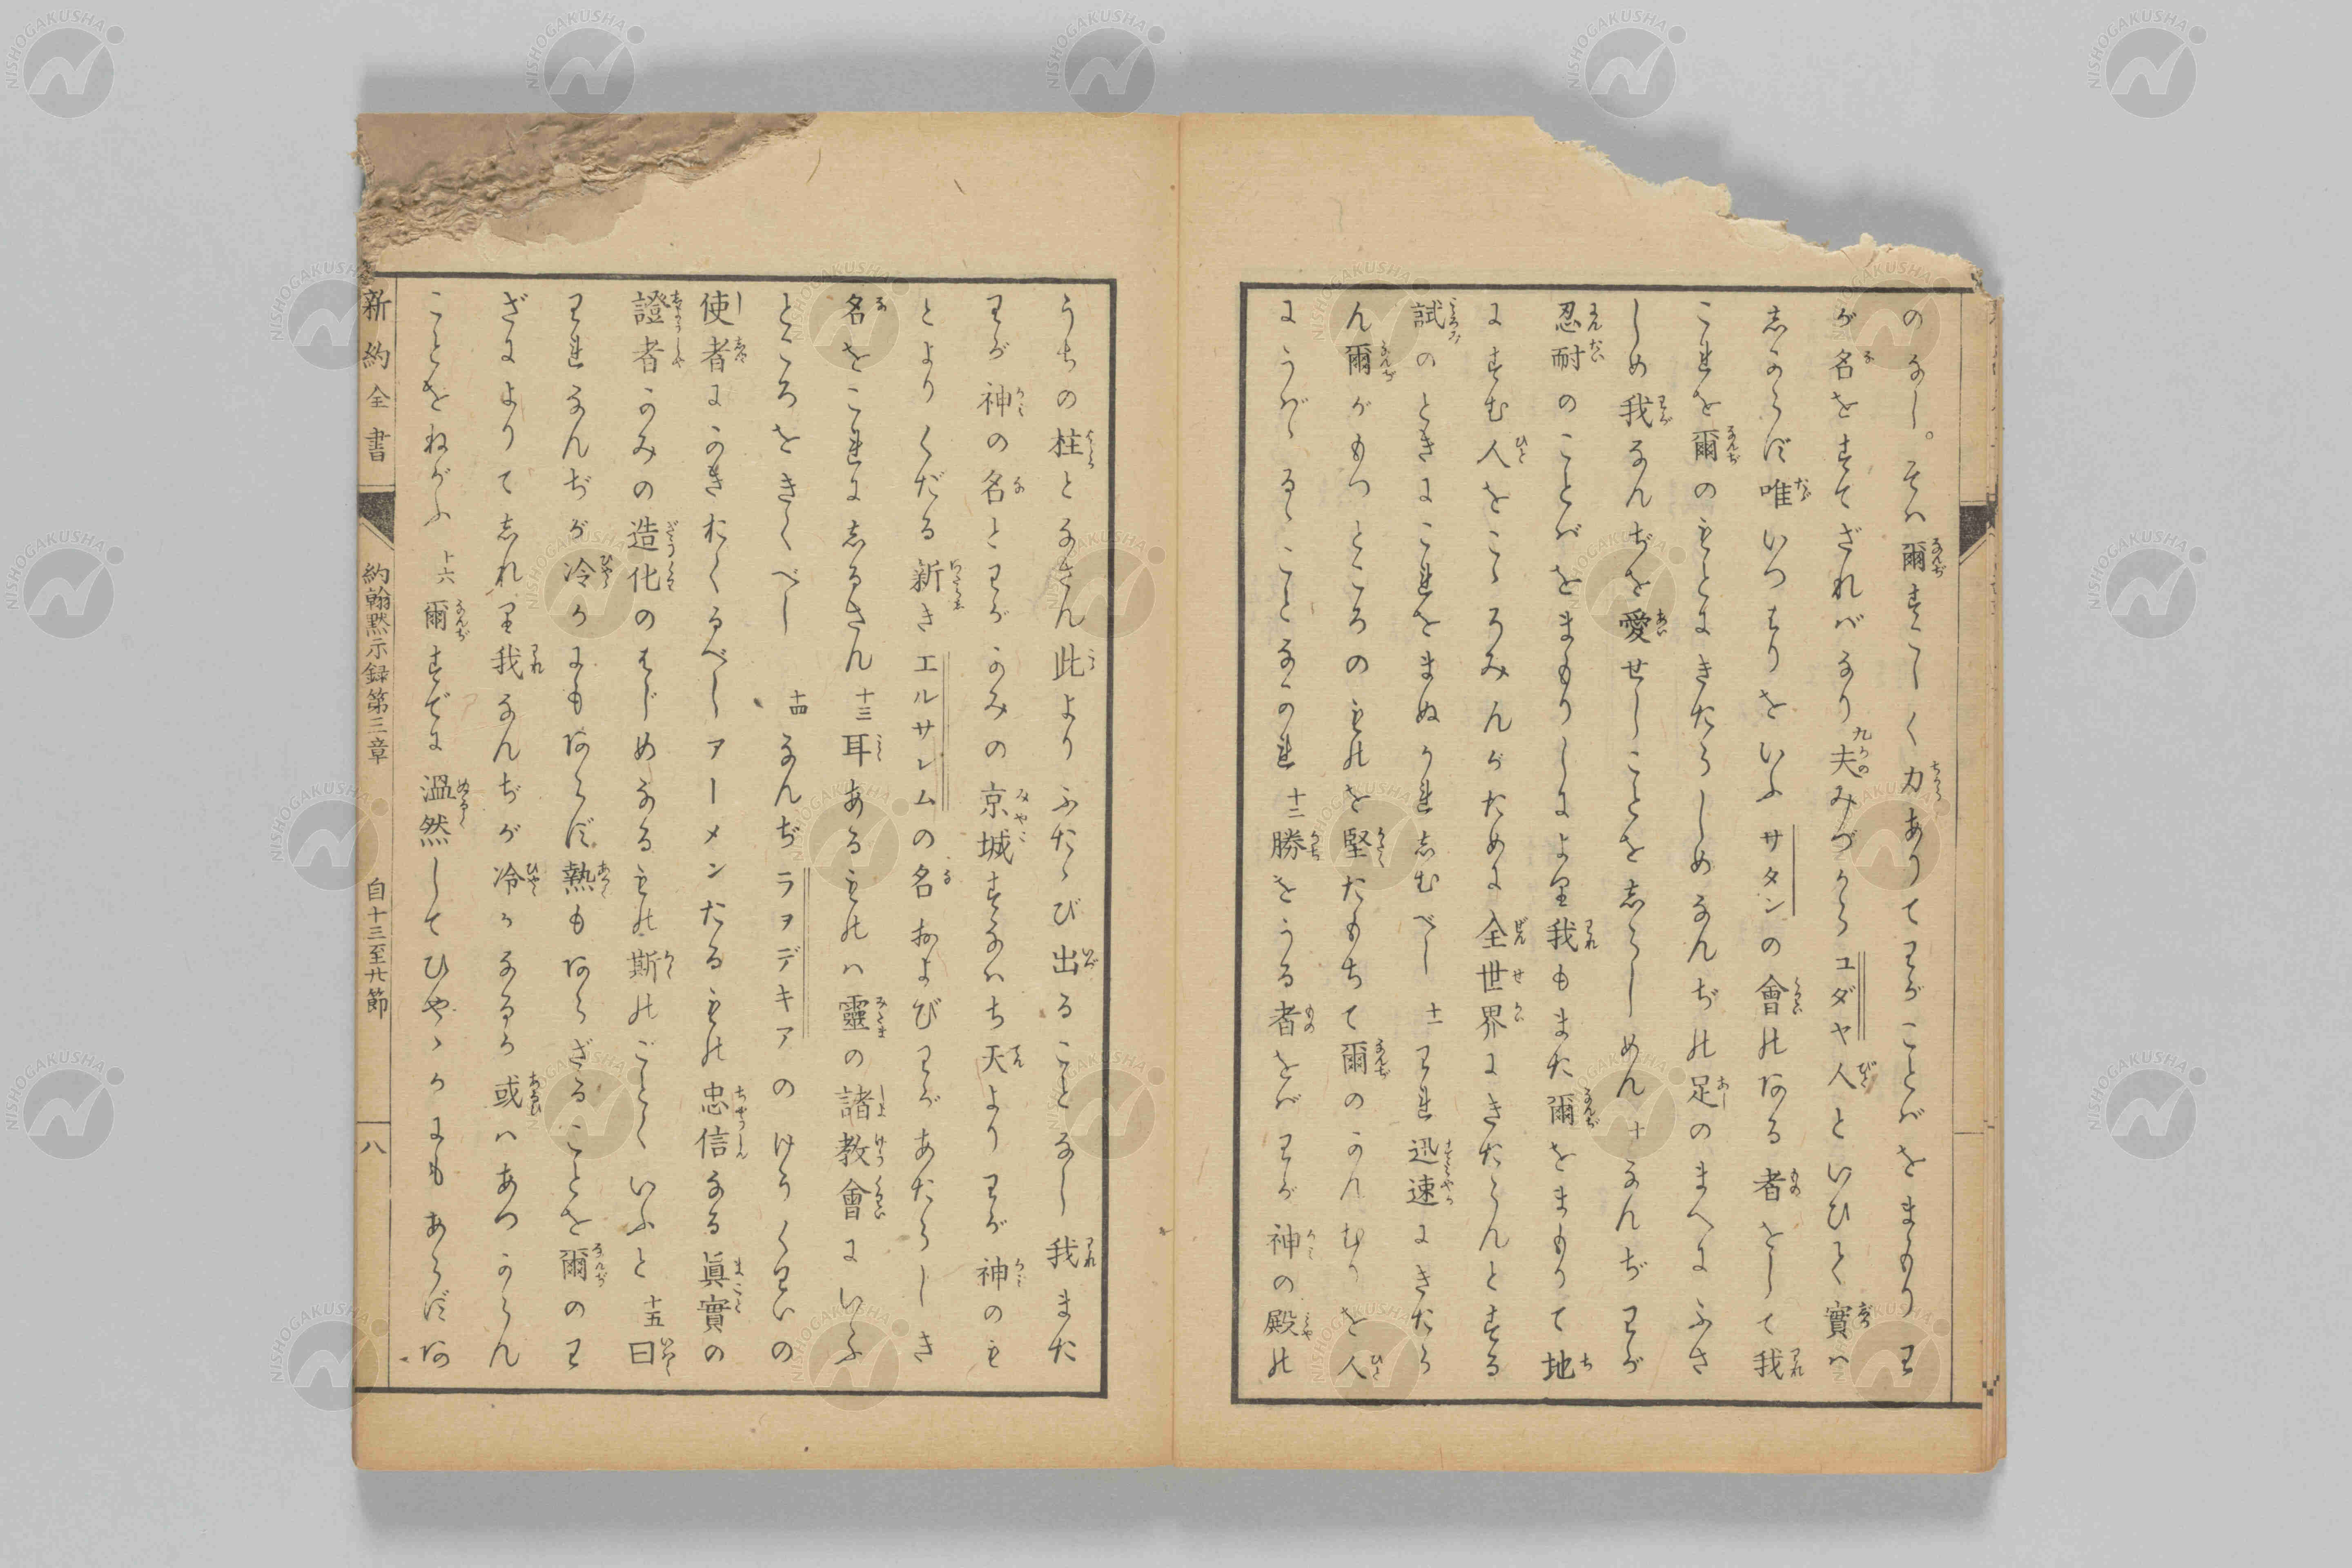 のなし。そハ爾すこしく力ありてわがことばをまもりわ
が名をすてざればなり九夫みづからユダヤ人といひて實ハ
しからず唯いつはりをいふサタンの會のある者をして我
これを爾のもとにきたらしめなんぢの足のまへにふさ
しめ我なんぢを愛せしことをしらしめん十なんぢわが
忍耐のことばをまもりしにより我もまた爾をまもりて地
にすむ人をこゝろみんがために全世界にきたらんとする
試のときにこれをまぬかれしむべし十一われ迅速にきたら
ん爾がもつところのものを堅たもちて爾のかんむりを人
にうばゝるゝことなかれ十二勝をうる者をばわが神の殿の
うちの柱となさん此よりふたゝび出ることなし我また
わが神の名とわがかみの京城すなハち天よりわが神のも
とよりくだる新きエルサレムの名およびわがあたらしき
名をこれにしるさん十三耳あるものハ靈の諸教會にいふ
ところをきくべし十四なんぢラヲデキアのけうくわいの
使者にかきおくるべしアーメンたるもの忠信なる眞實の
證者かみの造化のはじめなるもの斯のごとくいふと十五曰
われなんぢが冷かにもあらず熱もあらざることを爾のわ
ざによりてしれり我なんぢが冷かなるか或ハあつからん
ことをねがふ十六爾すでに溫然してひやゝかにもあらずあ
新約全書 約翰黙示録第三章 自十三至廿節 八